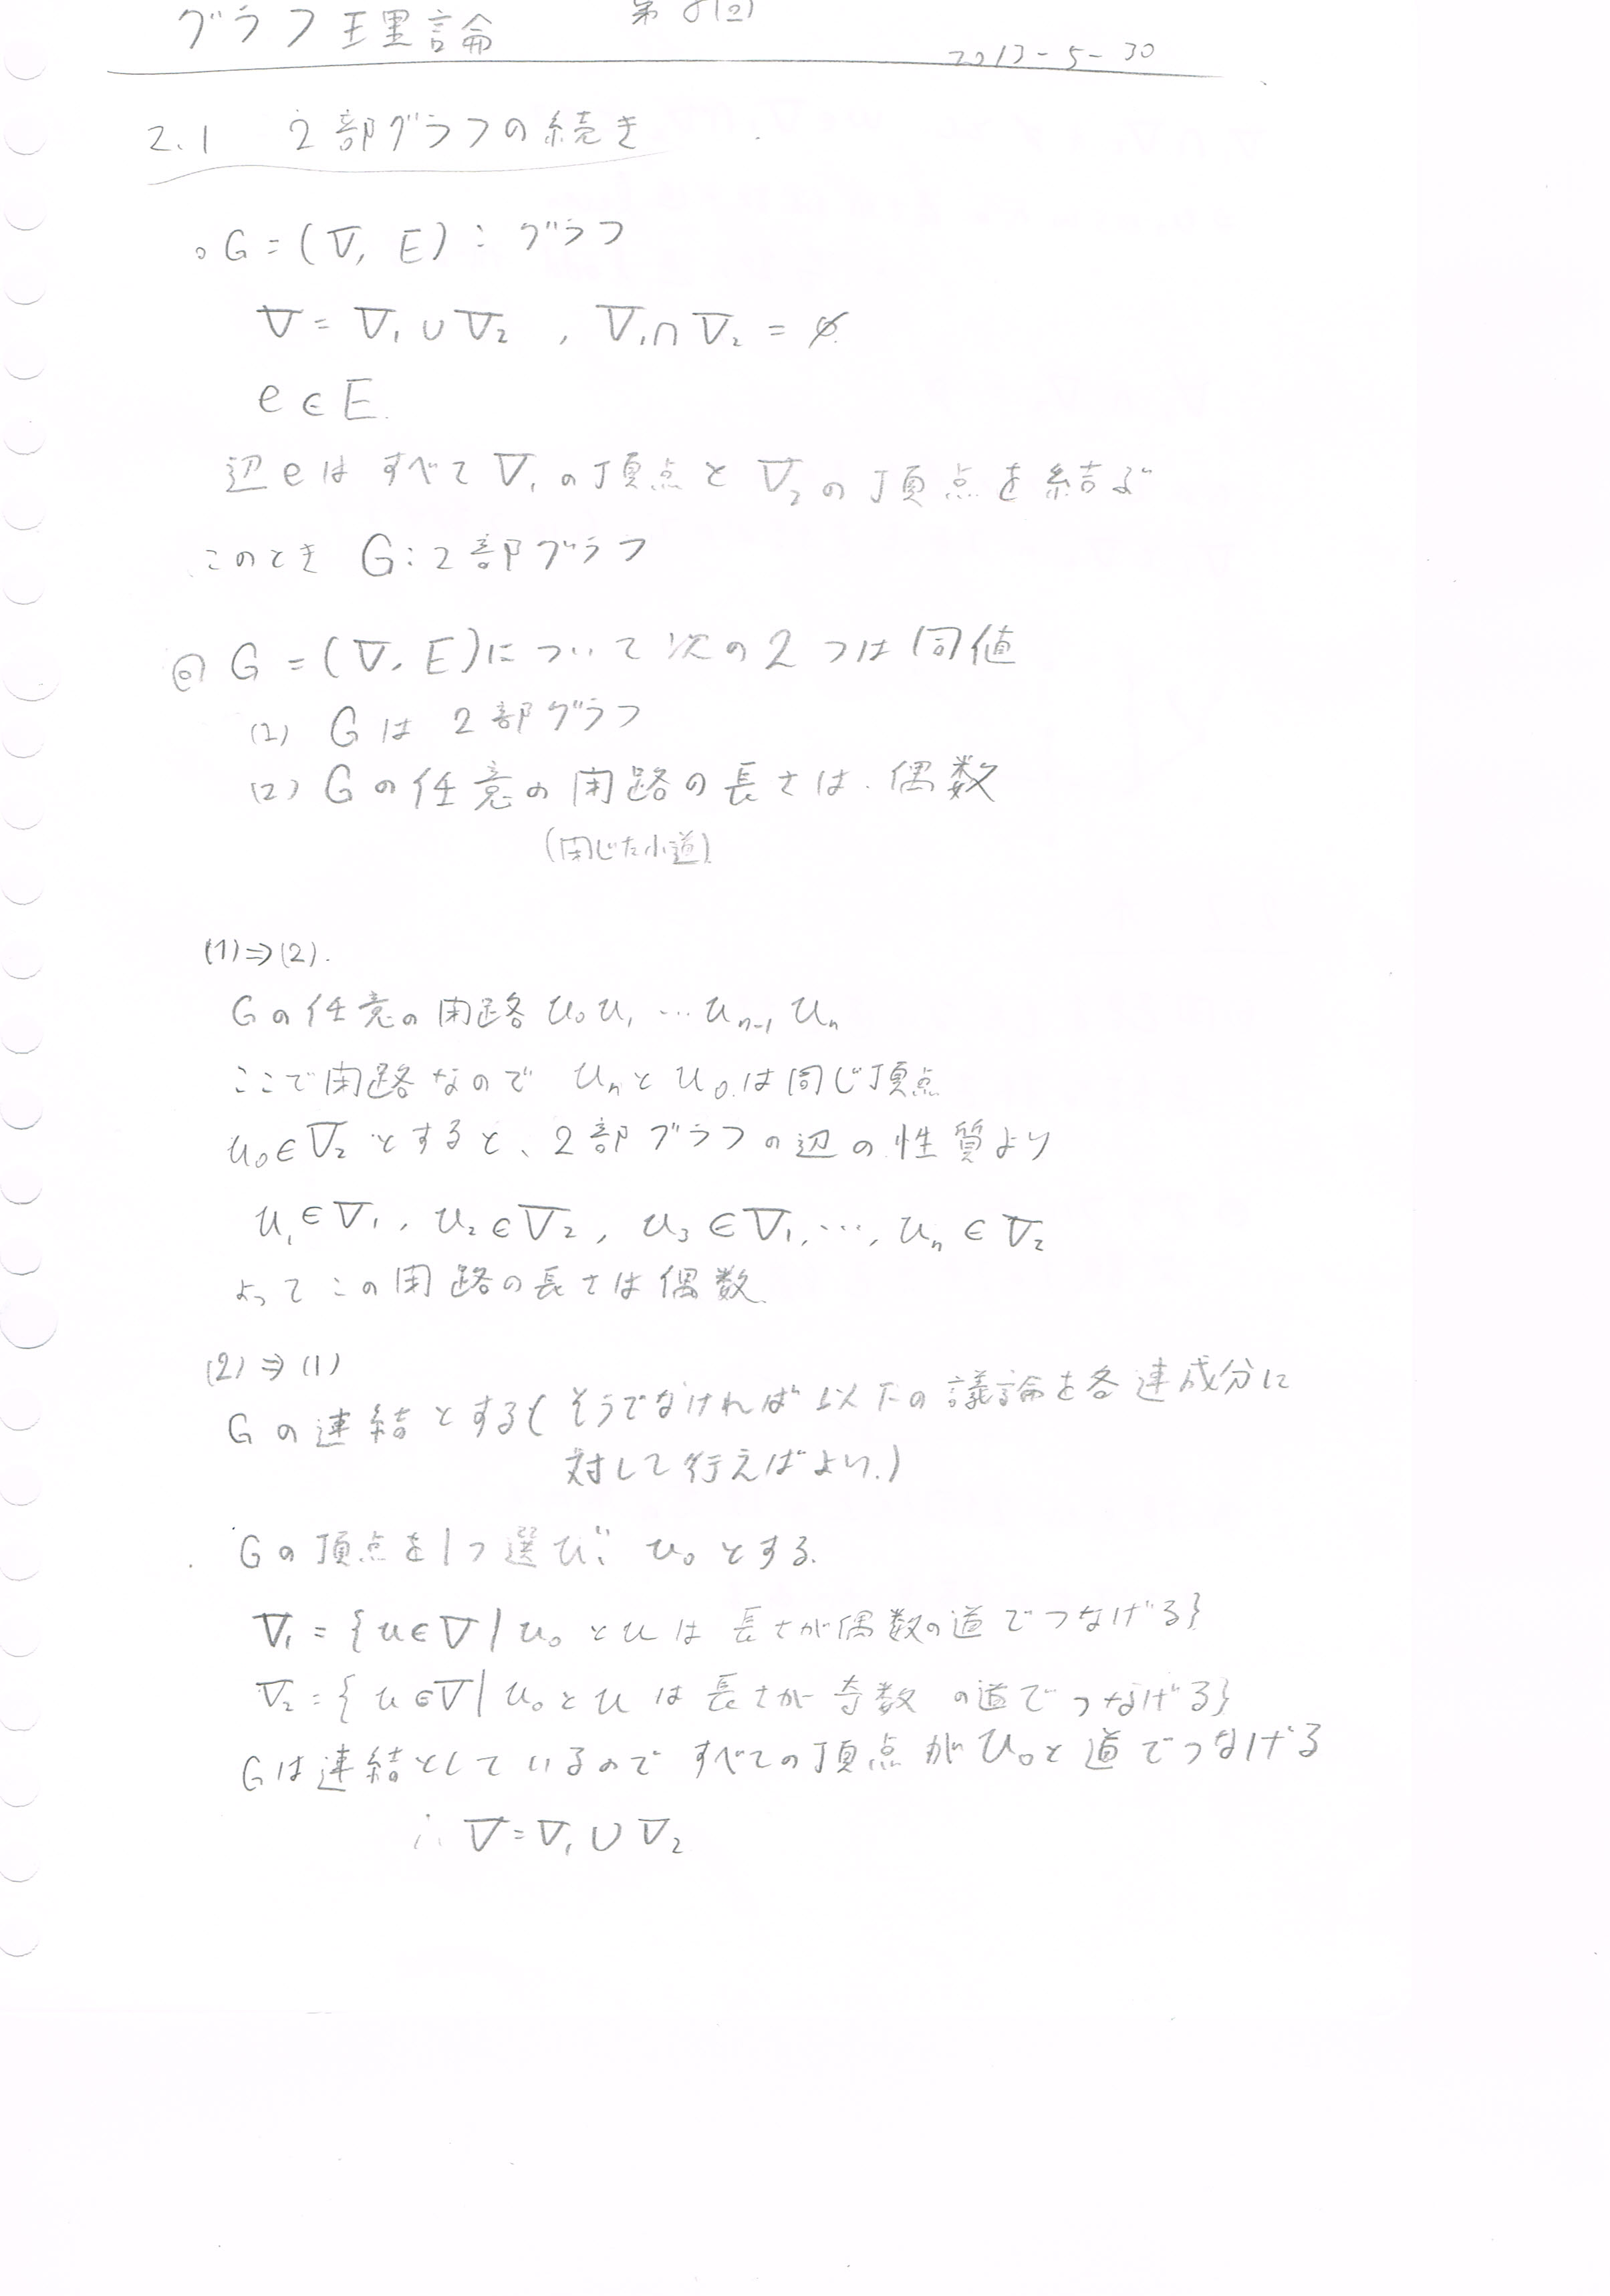 グラフ理論
2013-5-30
2.1 2部グラフの続き
。G=(V, E): グラフ
V=V₁∪V₂ , V₁∩V₂=∅
e∈E.
辺eは すべて V₁の頂点と V₂の頂点を結ぶ
このとき G:2部グラフ
G=(V, E)について次の2つは同値
(1) Gは 2部グラフ
(2) Gの任意の閉路の長さは. 偶数
(閉じた小道)
(1)⇒(2).
Gの任意の閉路 u₀u₁…uₙ₋₁uₙ
ここで閉路なので uₙとu₀は同じ頂点
u₀∈V₂とすると、2部グラフの辺の性質より
u₁∈V₁, u₂∈V₂, u₃∈V₁, …, uₙ∈V₂
よってこの閉路の長さは偶数.
(2)⇒(1)
Gの連結とする(そうでなければ以下の議論を各連成分に
対して行えばよい.)
Gの頂点を1つ選び u₀とする.
V₁={u∈V|u₀とuは 長さが偶数の道でつなげる}
V₂={u∈V|u₀とuは 長さが奇数の道でつなげる}
Gは連結としているので すべての頂点がu₀と道でつなげる
∴ V=V₁∪V₂